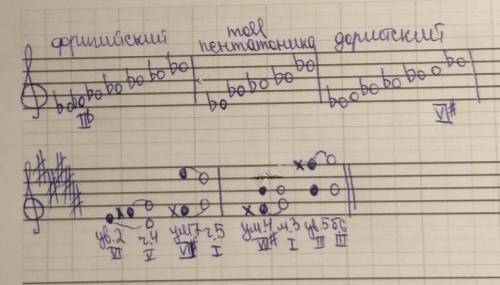 фригийский
moll
пентатоника
дорийский
II♭
VI#
ув.2 ч.4 ум.7 ч.5 ум.4 м.3 ув.5 б.6
VI V VII# I VII# I III III